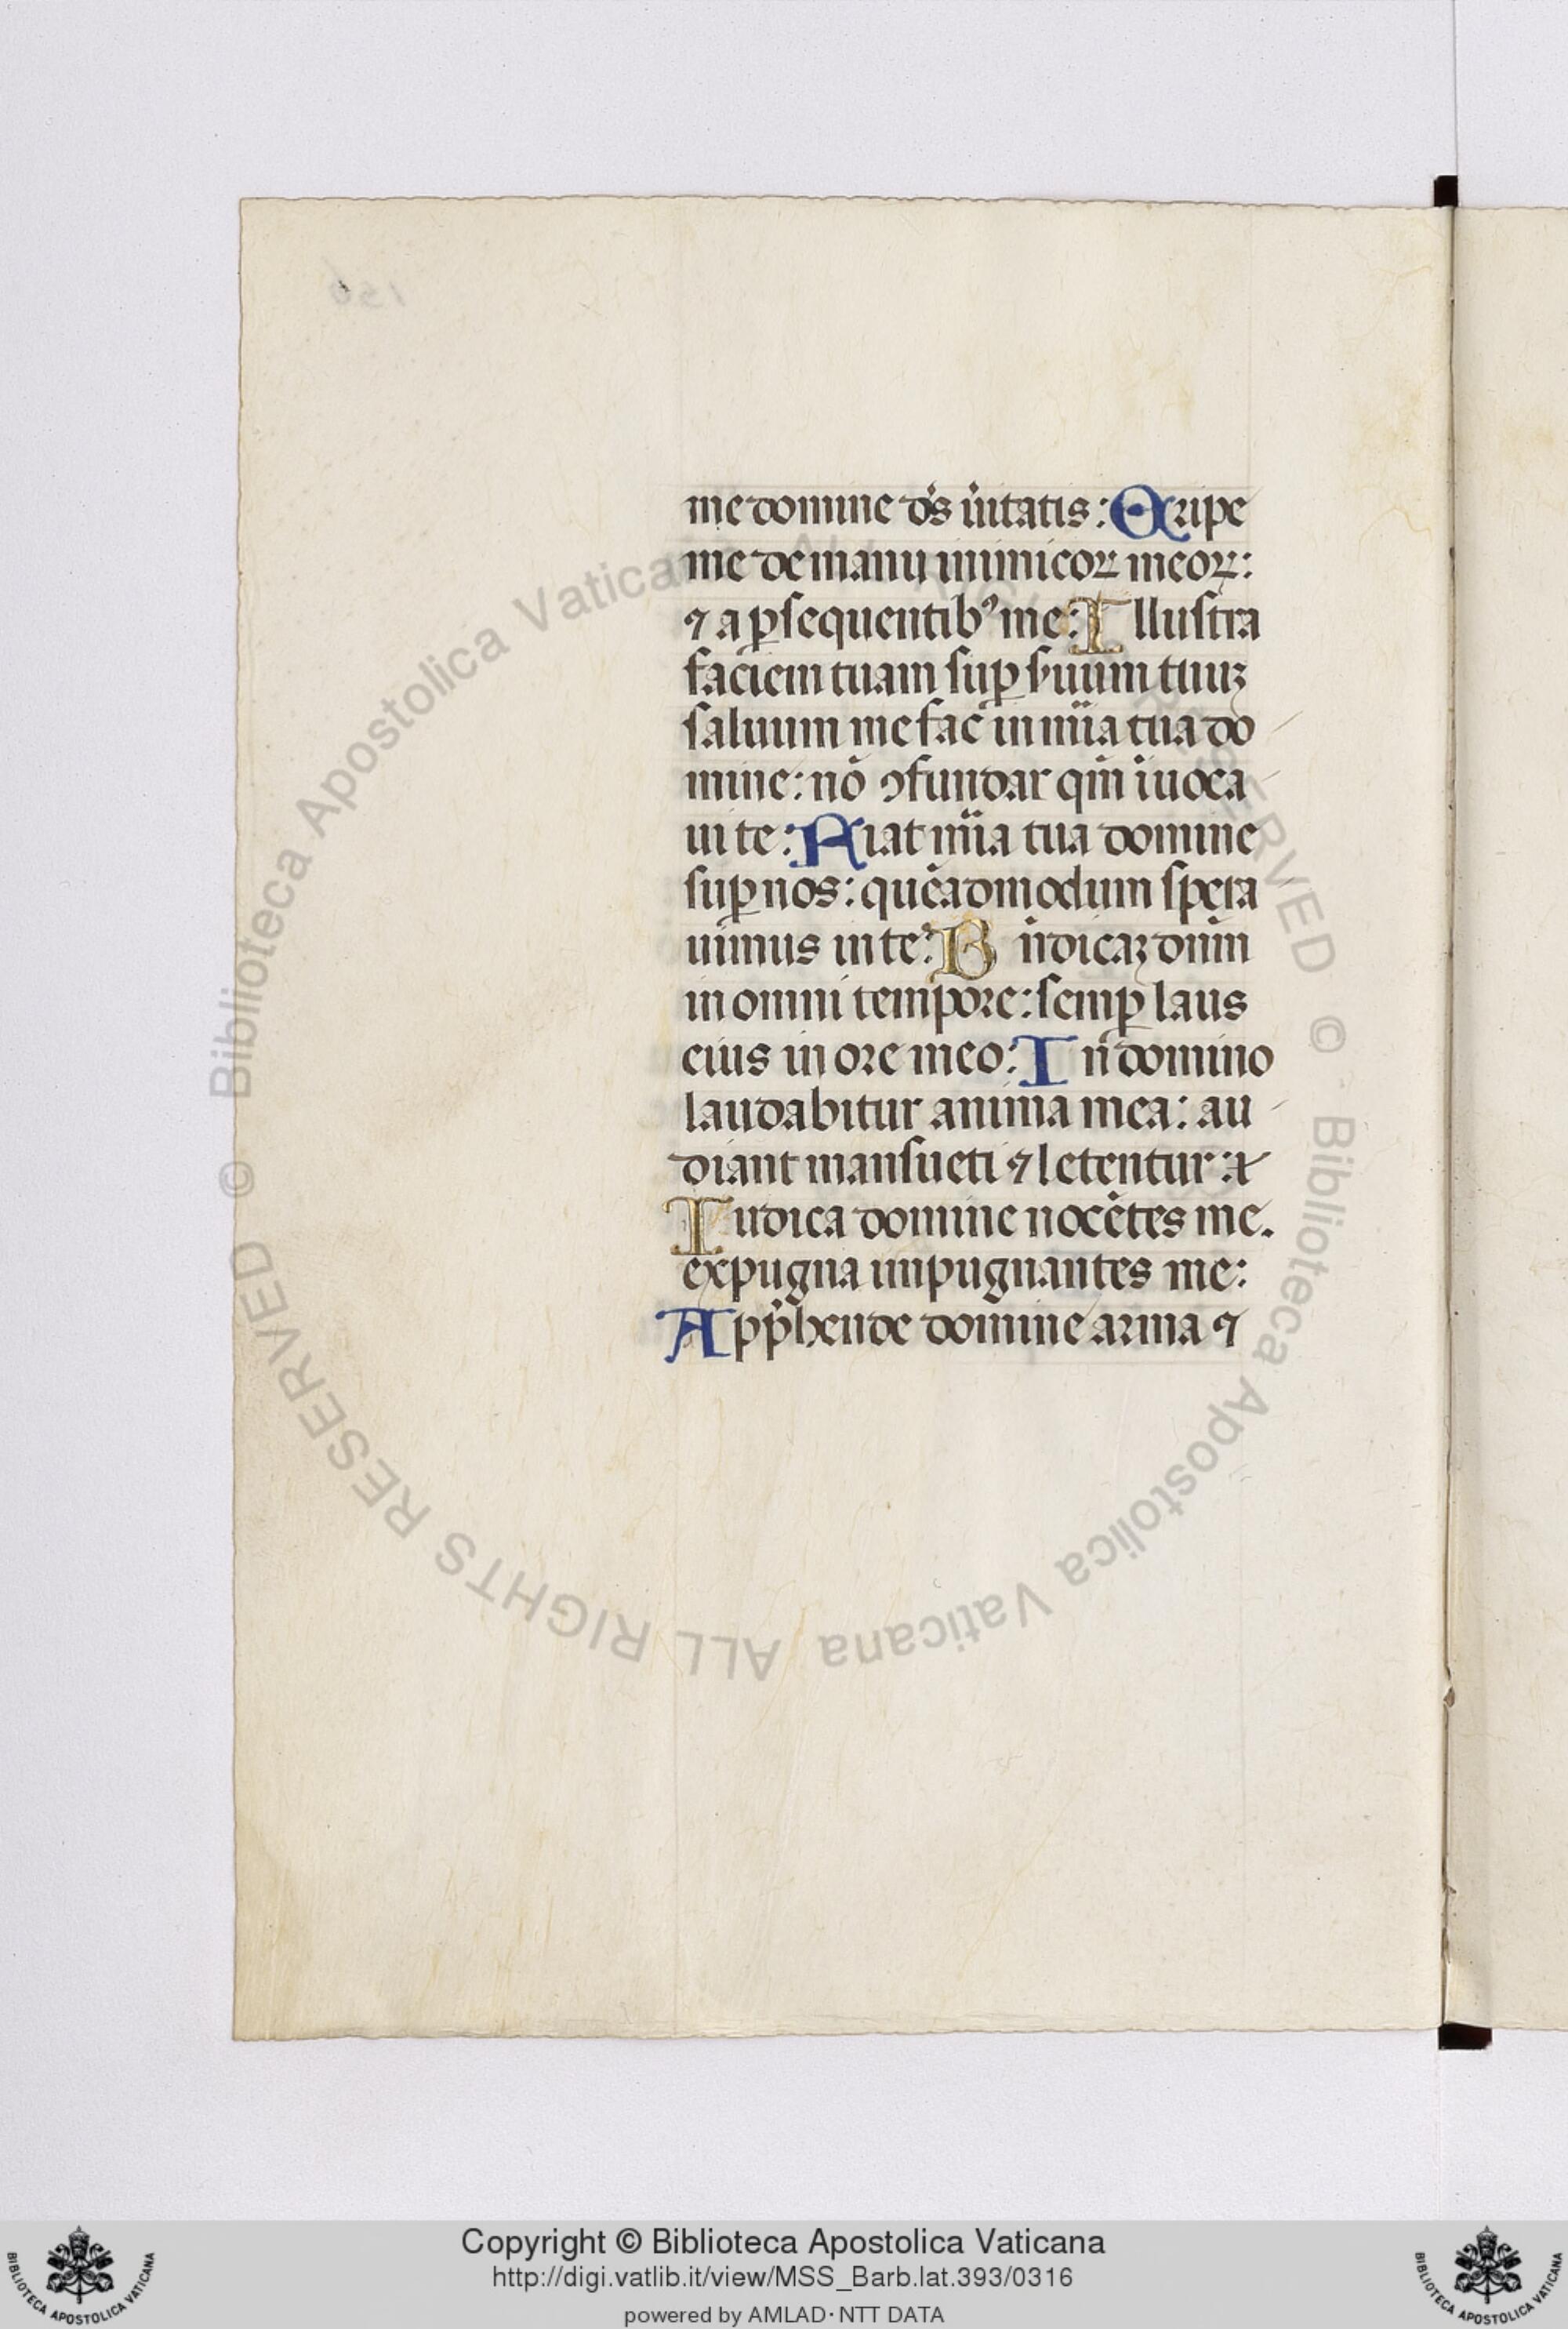 me domine dẜs ũitatis: Eripe
me de manu inimicoꝝ meoꝝ:
⁊ a ꝑsequentibꝰ me: Illustra
faciem tuam suꝑ s̃uum tuuꝫ
saluum me fac̃ in mĩa tua do
mine: nõ ꝯfundar qm̃ ĩuoca
ui te: Fiat mĩa tua domine
suꝑ nos: quẽadmodum spera
uimus in te: B ñdicaꝫ dnm̃
in omni tempore: semꝑ laus
eius in ore meo: In domino
laudabitur anima mea: au
diant mansueti ⁊ letentur:
Iudica domine nocẽtes me.
expugna impugnantes me:
App̃hende domine arma ⁊
© Biblioteca Apostolica Vaticana ALL RIGHTS RESERVED © Biblioteca Apostolica Vaticana ALL RIGHTS RESERVED
Copyright © Biblioteca Apostolica Vaticana
http://digi.vatlib.it/view/MSS_Barb.lat.393/0316
powered by AMLAD · NTT DATA
BIBLIOTECA APOSTOLICA VATICANA
BIBLIOTECA APOSTOLICA VATICANA